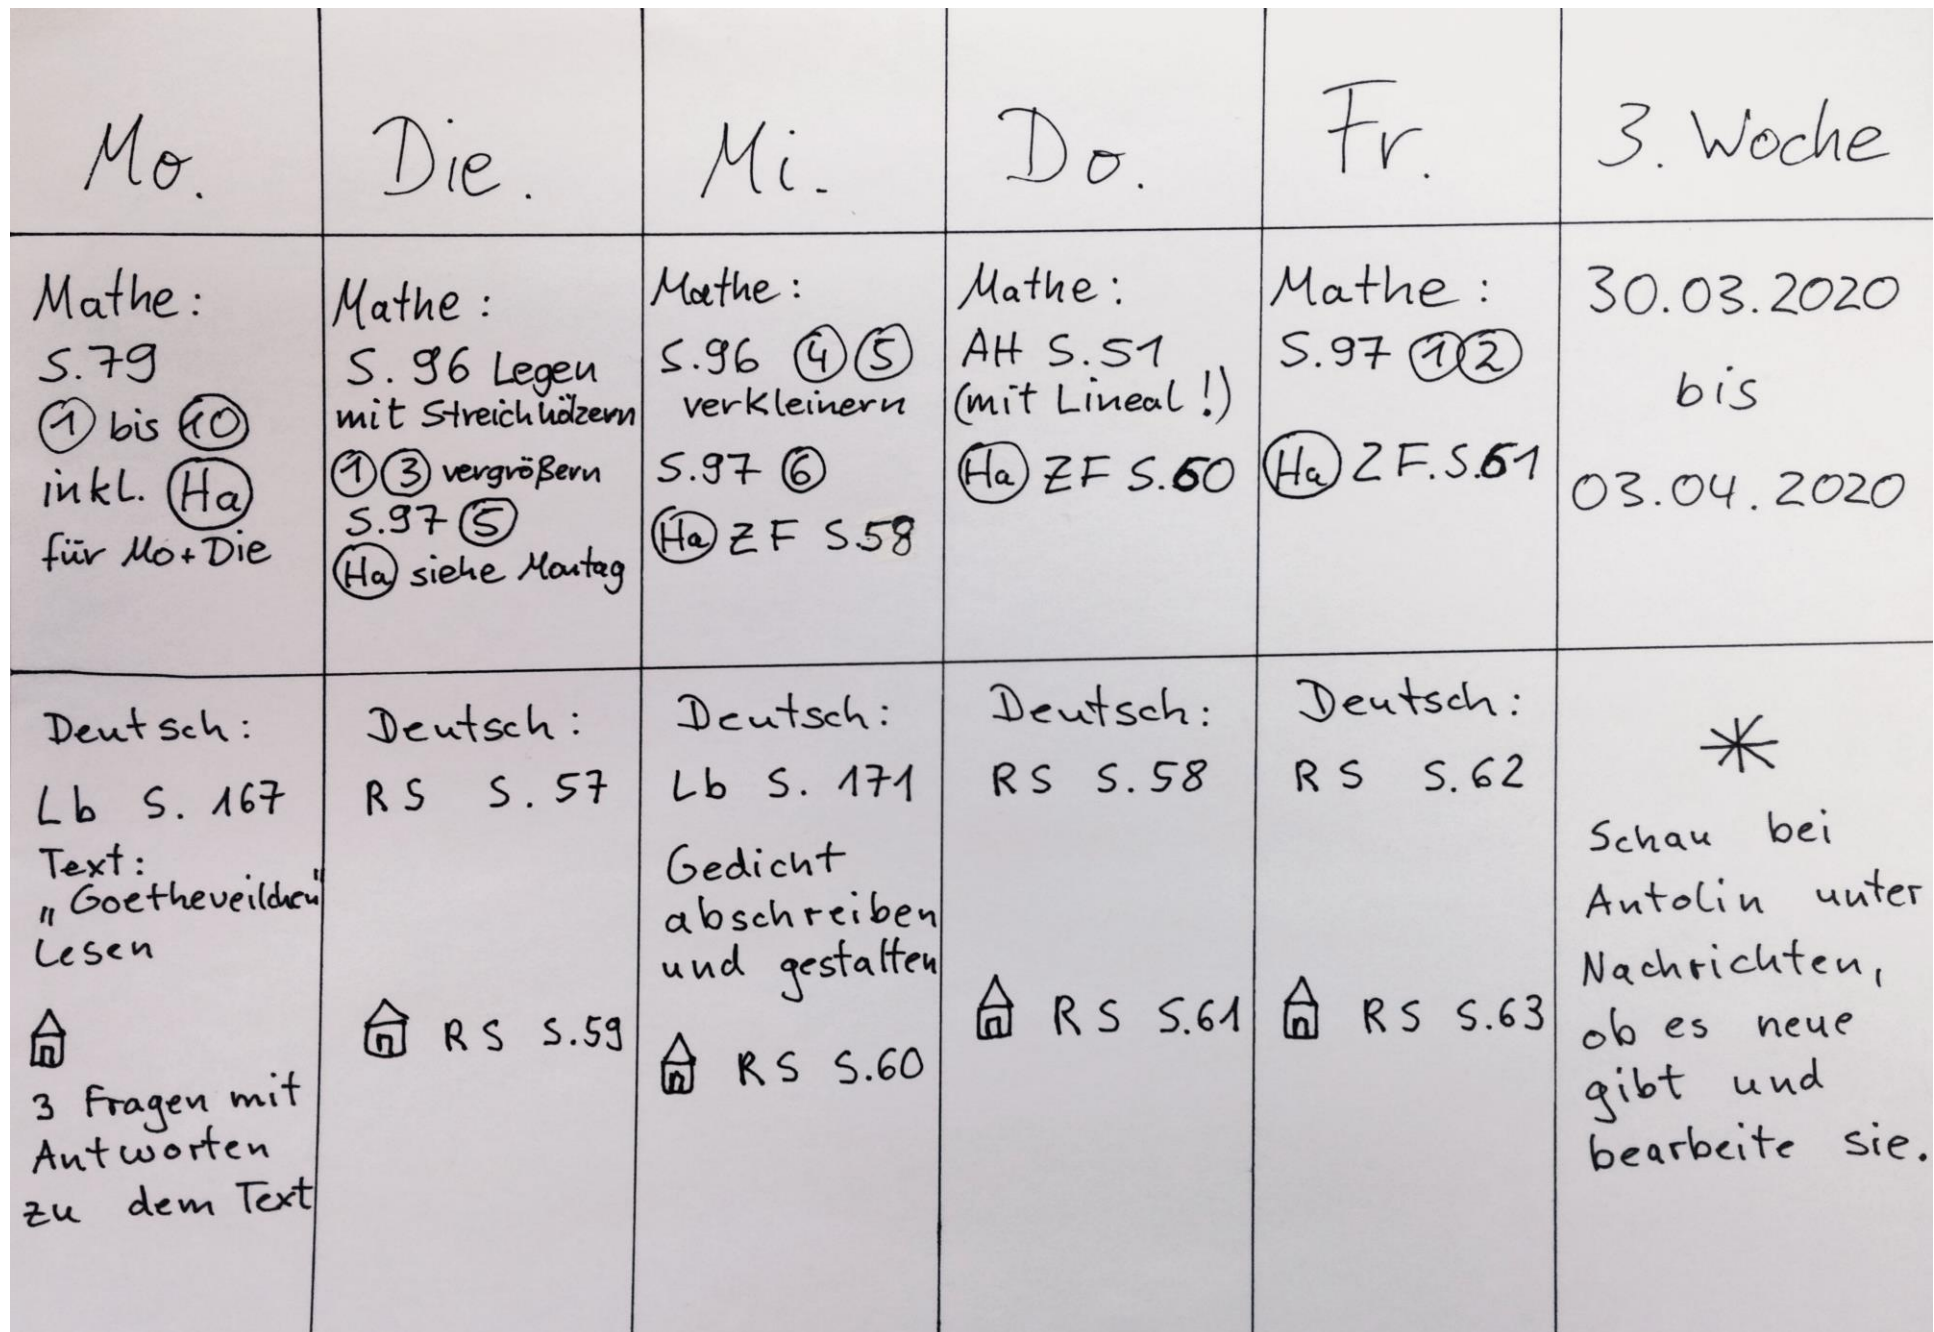 Mo.
Die.
Mi.
Do.
Fr.
3. Woche
Mathe:
S.79
1 bis 10
inkl. Ha
für Mo+Die
Mathe:
S. 96 Legen
mit Streichhölzern
1 3 vergrößern
S.97 5
Ha siehe Montag
Mathe:
S.96 4 5
verkleinern
S.97 6
Ha ZF S.58
Mathe:
AH S.51
(mit Lineal!)
Ha ZF S.60
Mathe:
S.97 1 2
Ha ZF.S.61
30.03.2020
bis
03.04.2020
Deutsch:
Lb S. 167
Text:
„Goetheveilchen"
Lesen
3 Fragen mit
Antworten
zu dem Text
Deutsch:
RS S. 57
RS S.59
Deutsch:
Lb S. 171
Gedicht
abschreiben
und gestalten
RS S.60
Deutsch:
RS S.58
RS S.61
Deutsch:
RS S.62
RS S.63
*
Schau bei
Antolin unter
Nachrichten,
ob es neue
gibt und
bearbeite sie.